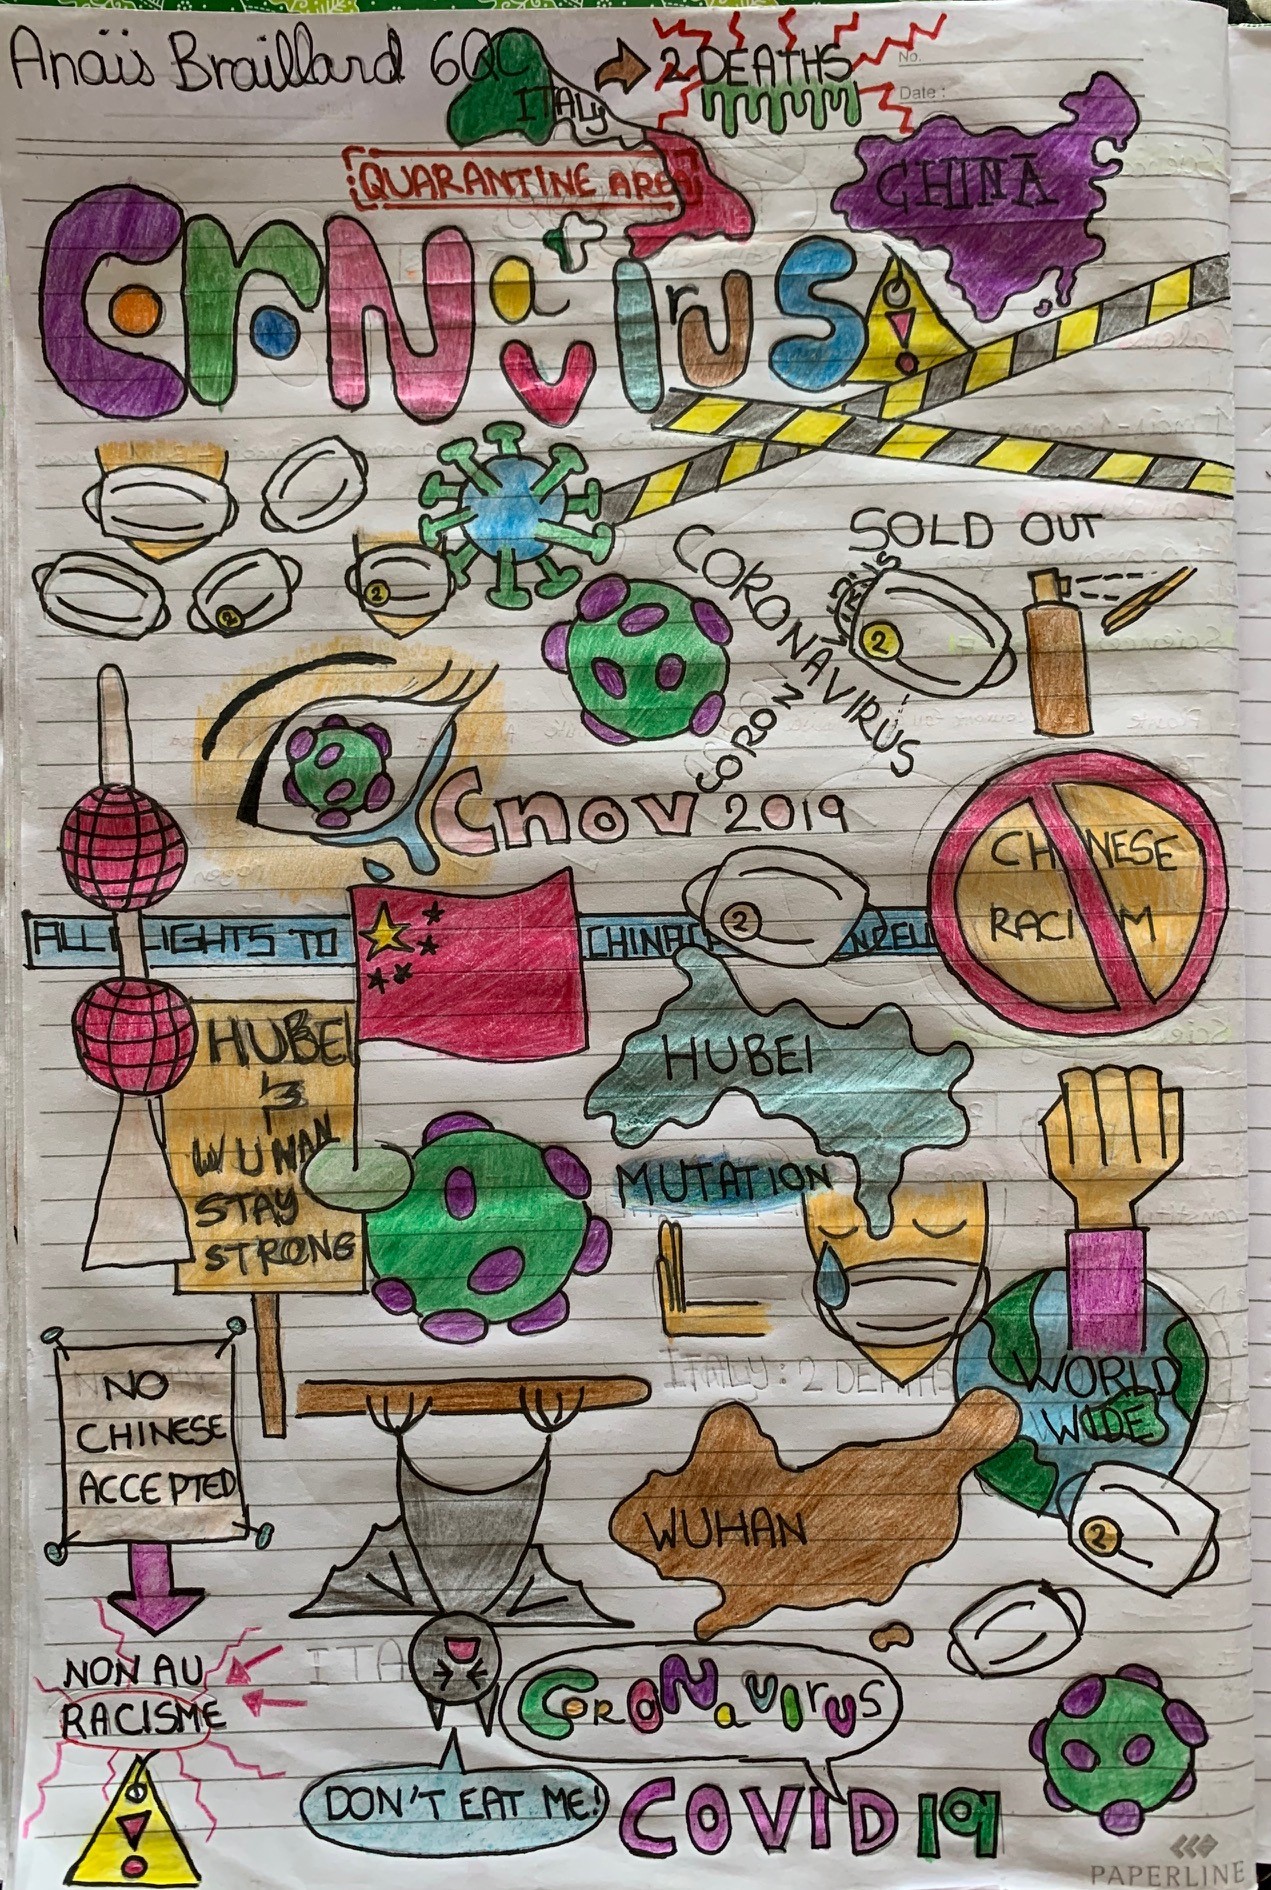 Anaïs Braillard 6QC
ITALY
2 DEATHS
No.
Date :
QUARANTINE AREA
CHINA
CORONaVIrUS
SOLD OUT
CORONAVIRUS
VIRUS
CORON
2
2
2
Cnov 2019
2
CHINESE
RACISM
ALL FLIGHTS TO
CHINA CANCELL
HUBEI
WUHAN
STAY
STRONG
HUBEI
MUTATION
ITALY : 2 DEATHS
WORLD
WIDE
NO
CHINESE
ACCEPTED
WUHAN
2
NON AU
RACISME
ITA
CORONaVIrUS
DON'T EAT ME!
COVID 19
PAPERLINE